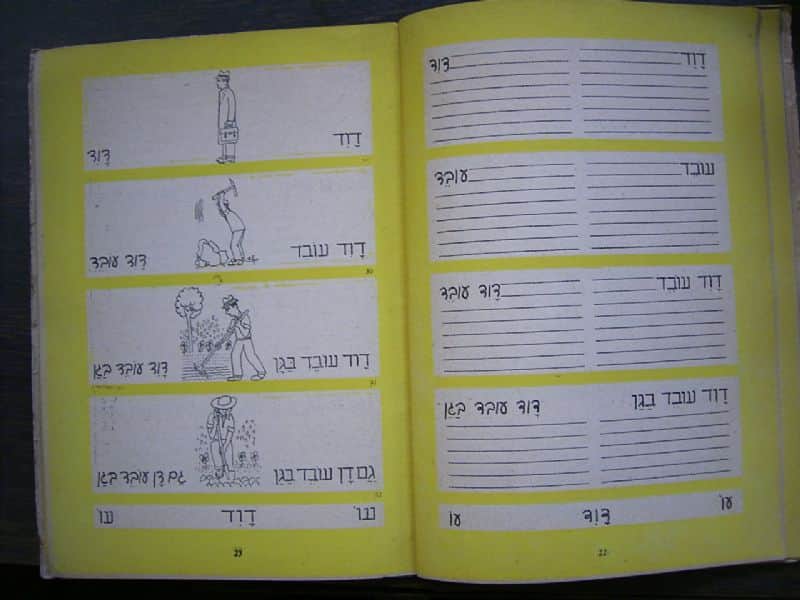 דָוִד דָוִד
עוֹבֵד עוֹבֵד
דָוִד עוֹבֵד דָוִד עוֹבֵד
דָוִד עוֹבֵד בַּגַן דָוִד עוֹבֵד בַּגַן
עוֹ דָוִד עוֹ
22
דָוִד דָוִד
דָוִד עוֹבֵד דָוִד עוֹבֵד
דָוִד עוֹבֵד בַּגָן דָוִד עוֹבֵד בַּגָן
גַם דָן עוֹבֵד בַּגַן גַם דָן עוֹבֵד בַּגַן
עוֹ דָוִד עוֹ
23